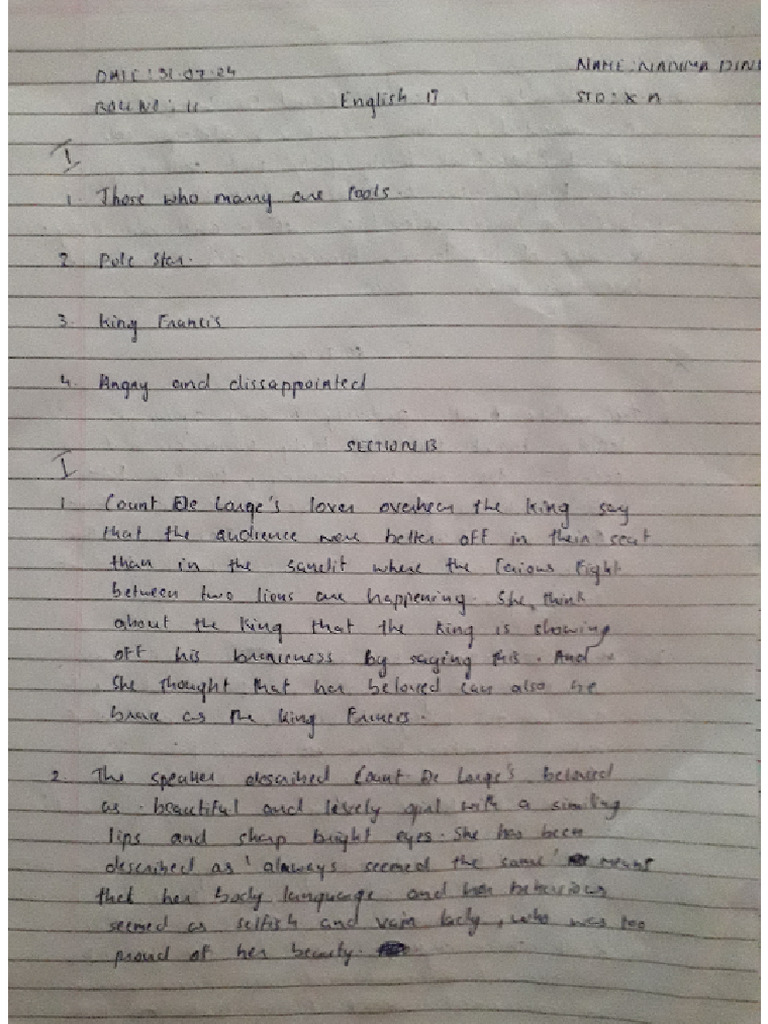 DATE: 31.07.24
NAME: NADIYA DIN
ROLL NO: 11
English 17
STD: X A
I
1. Those who marry are fools.
2. Pole Star.
3. King Francis
4. Angry and dissappointed
SECTION B
I
1. Count De Lorge's lover overhear the king say
that the audience were better off in their seat
than in the sandit where the ferious fight
between two lions are happening. She think
about the king that the king is showing
off his braveness by saying this. And
she thought that her beloved can also be
brave as the king Francis.
2. The speaker described Count De Lorge's beloved
as beautiful and lively girl with a similing
lips and sharp bright eyes. She has been
described as 'always seemed the same' means
that her body language and her behavious
seemed as selfish and vain lady, who was too
proud of her beauty.